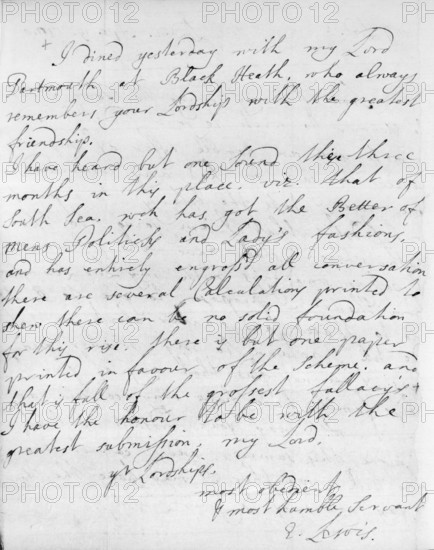 I dined yesterday with my Lord
Dartmouth at Black Heath, who always
remembers your Lordship with the greatest
friendship.
I have heard but one Sound these three
months in this place. viz. that of
South Sea. wch has got the Better of
mens Politicks and Lady's fashions,
and has entirely engross'd all conversation
there are several Calculations printed to
shew there can be no solid foundation
for this rise. there is but one paper
printed in favour of the Scheme. and
that is full of the grossest fallacys
I have the honour to be with the
greatest submission, my Lord.
yr Lordships.
most obedient
& most humble Servant
E. Lewis.
PHOTO12